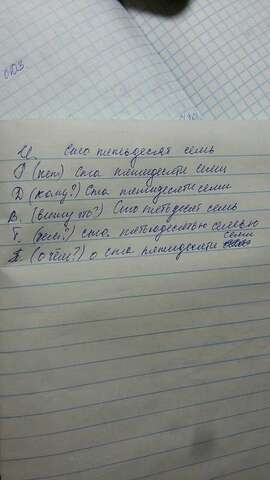 И. Сто пятьдесят семь
Р (нет) Ста пятидесяти семи
Д (кому?) Ста пятидесяти семи
В. (вижу что?) Сто пятьдесят семь
Т. (чем?) ста пятьюдесятью семью
П. (о чём?) о ста пятидесяти семи